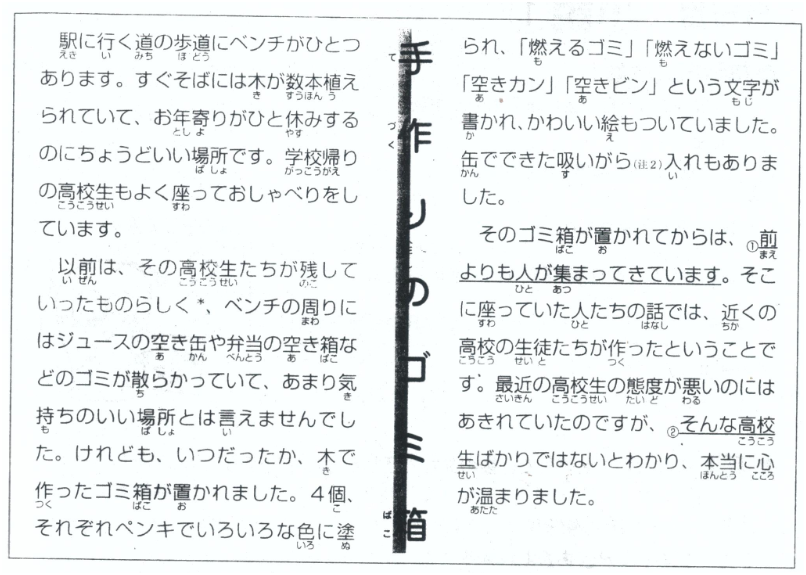 手作りのゴミ箱
駅に行く道の歩道にベンチがひとつ
あります。すぐそばには木が数本植え
られていて、お年寄りがひと休みする
のにちょうどいい場所です。学校帰り
の高校生もよく座っておしゃべりをし
ています。
以前は、その高校生たちが残して
いったものらしく*、ベンチの周りに
はジュースの空き缶や弁当の空き箱な
どのゴミが散らかっていて、あまり気
持ちのいい場所とは言えませんでし
た。けれども、いつだったか、木で
作ったゴミ箱が置かれました。4個、
それぞれペンキでいろいろな色に塗
られ、「燃えるゴミ」「燃えないゴミ」
「空きカン」「空きビン」という文字が
書かれ、かわいい絵もついていました。
缶でできた吸いがら(注2)入れもありま
した。
そのゴミ箱が置かれてからは、①前
よりも人が集まってきています。そこ
に座っていた人たちの話では、近くの
高校の生徒たちが作ったということで
す。最近の高校生の態度が悪いのには
あきれていたのですが、②そんな高校
生ばかりではないとわかり、本当に心
が温まりました。